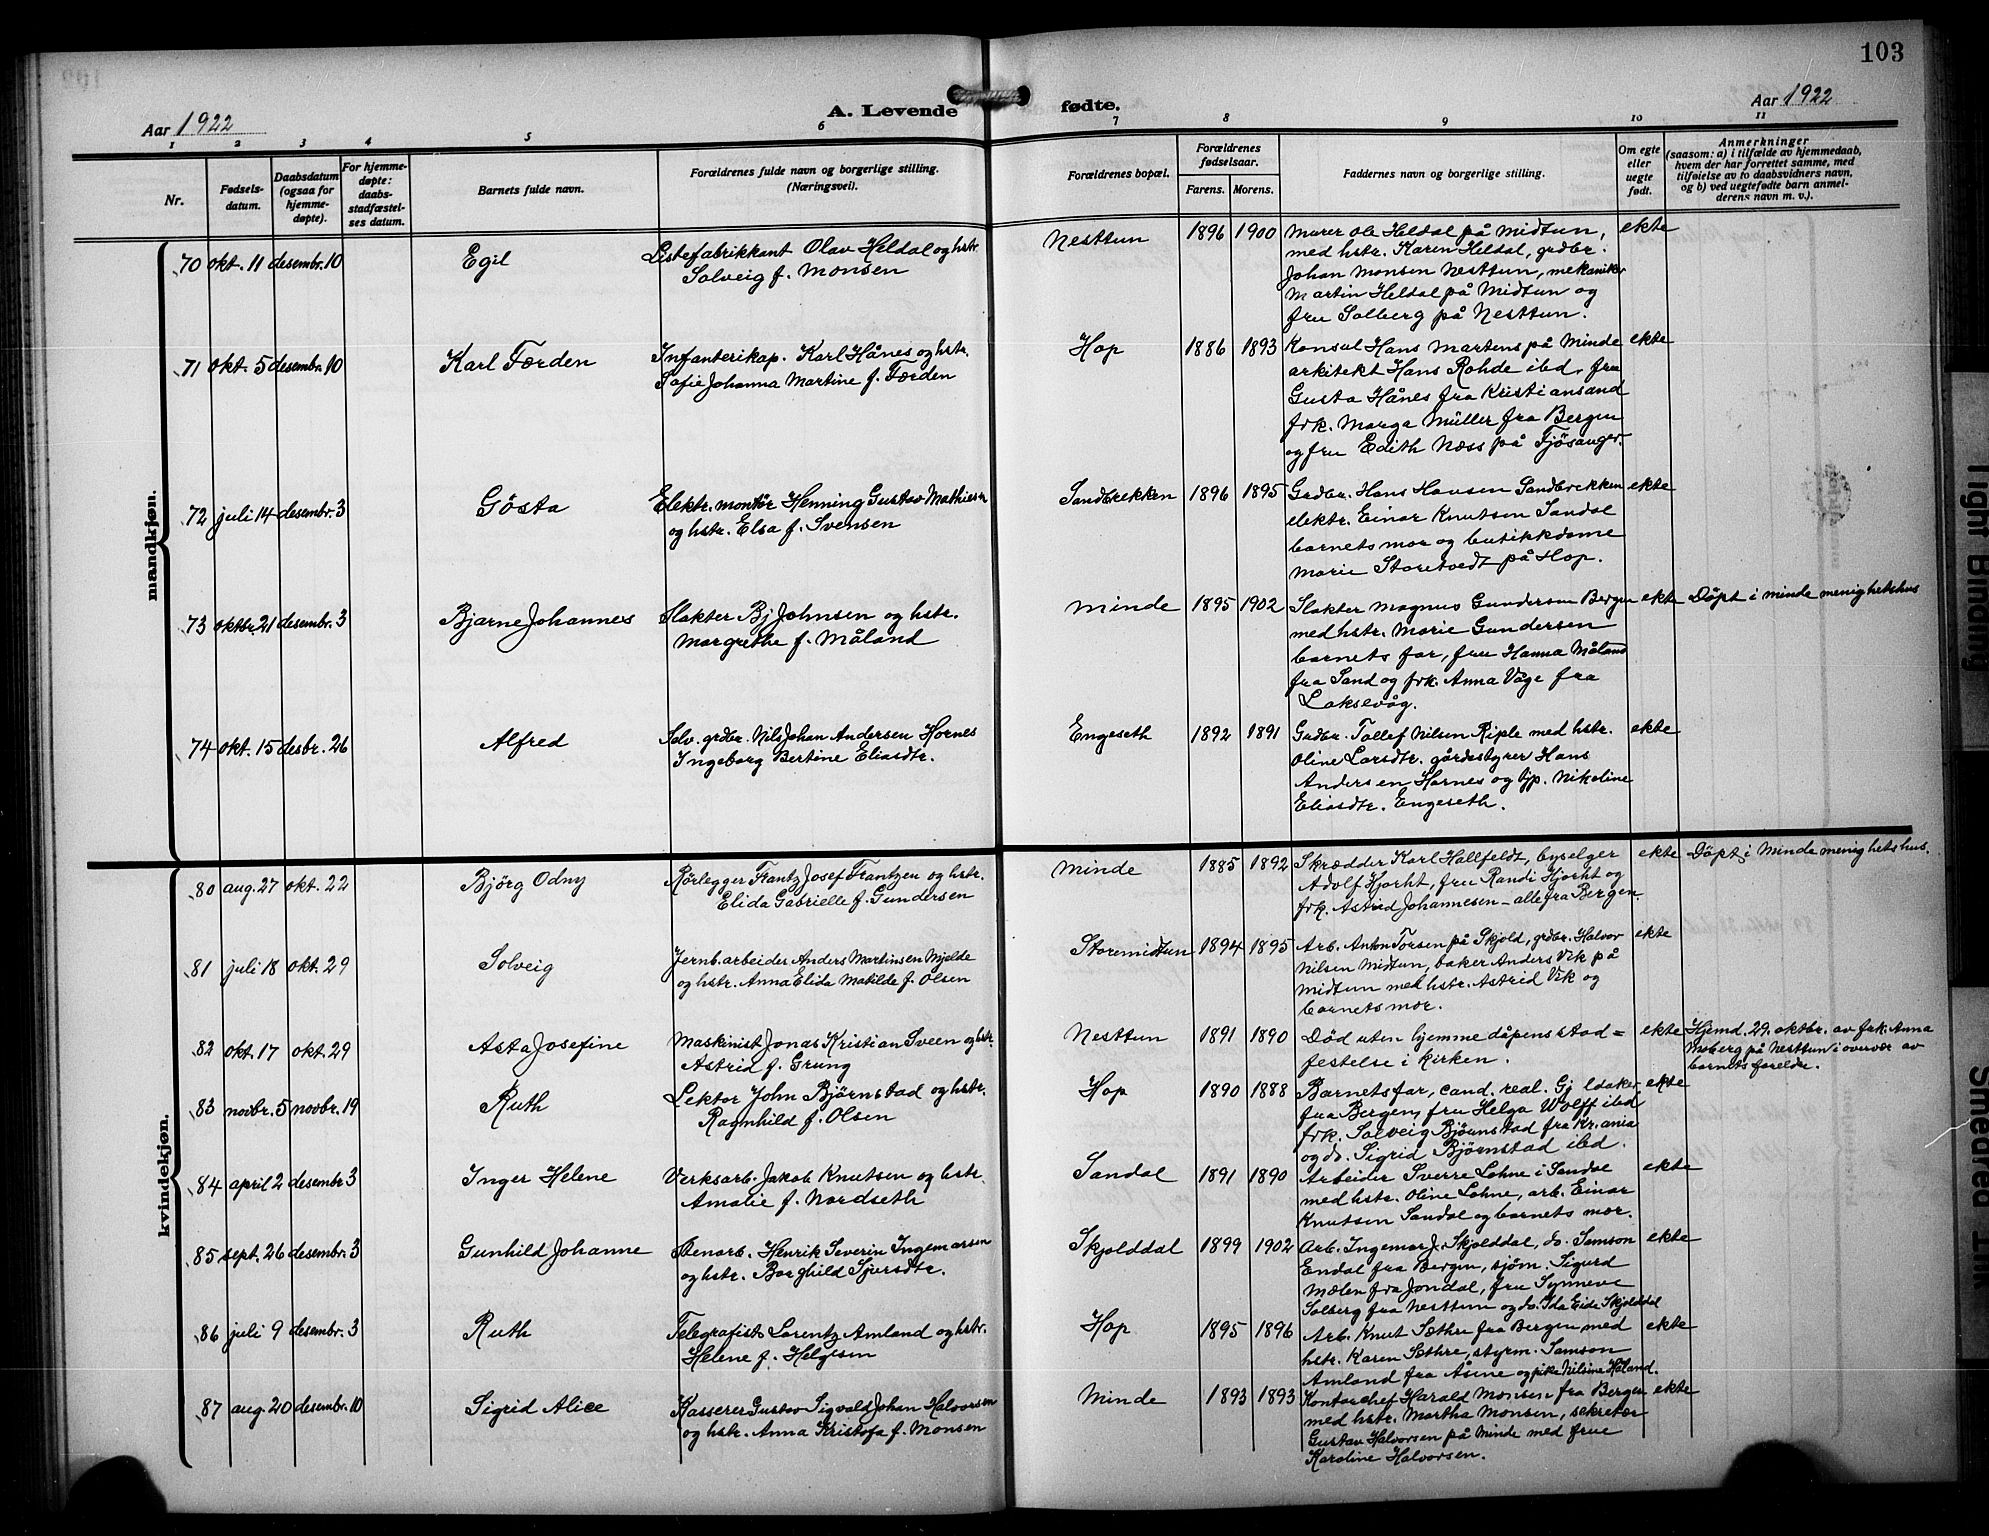 103
Aar 1922
A. Levende fødte.
Aar 1922
1 2 3 4 5 6 7 8 9 10 11
Nr.
Fødsels-
datum.
Daabsdatum
(ogsaa for
hjemme-
døpte).
For hjemme-
døpte:
daabs-
stadfæstel-
ses datum.
Barnets fulde navn.
Forældrenes fulde navn og borgerlige stilling.
(Næringsvei).
Forældrenes bopæl.
Forældrenes
fødselsaar.
Farens. Morens.
Faddernes navn og borgerlige stilling.
Om egte
eller
uegte
født.
Anmerkninger
(saasom: a) i tilfælde av hjemmedaab,
hvem der har forrettet samme, med
tilføielse av to daabsvidners navn,
og b) ved uegtefødte barn anmel-
derens navn m. v.).
mandkjøn.
70 okt. 11 desembr. 10 Egil
Listefabrikkant Olav Heldal og hstr.
Solveig f. Monsen
Nesttun 1896 1900
Murer Ole Heldal på Midtun,
med hstr. Karen Heldal, grdbr.
Johan Monsen Nesttun, mekaniker
Martin Heldal på Midtun og
fru Solberg på Nesttun.
ekte
71 okt. 5 desembr. 10 Karl Færden
Infanterikap. Karl Hånes og hstr.
Sofie Johanna Martine f. Færden
Hop 1886 1893
Konsul Hans Martens på Minde
arkitekt Hans Rohde ibd, fru
Gusta Hånes fra Kristiansand
frk. Marga Müller fra Bergen
og fru Edith Næss på Fjøsanger.
ekte
72 juli 14 desembr. 3 Gösta
Elektr. montør Henning Gustav Mathiesen
og hstr. Elsa f. Svensen
Sandbrekken 1896 1895
Grdbr. Hans Hansen Sandbrekken
elektr. Einar Knutsen Sandal
barnets mor og butikkdame
Marie Storetvedt på Hop.
ekte
73 oktbr. 21 desembr. 3 Bjarne Johannes
Slakter Bj Johnsen og hstr.
Margrethe f. Måland
Minde 1895 1902
Slakter Magnus Gundersen Bergen
med hstr. Marie Gundersen
barnets far, fru Hanna Måland
fra Sand og frk. Anna Våge fra
Laksevåg.
ekte
Döpt i Minde menighetshus
74 okt. 15 desbr. 26 Alfred
Selv. grdbr. Nils Johan Andersen Hornes
Ingeborg Bertine Eliasdtr.
Engeseth 1892 1891
Grdbr. Tollef Nilsen Riple med hstr.
Oline Larsdtr. gårdsstyrer Hans
Andersen Hornes og tjp. Nikoline
Eliasdtr. Engeseth.
ekte
kvindekjøn.
80 aug. 27 okt. 22 Björg Odny
Rørlegger Frantz Josef Frantzen og hstr.
Elida Gabrielle f. Gundersen
Minde 1885 1892
Skrædder Karl Hallfeldt, byselger
Adolf Hjorht, fru Randi Hjorht og
frk. Astrid Johannesen - alle fra Bergen.
ekte
Döpt i Minde menighetshus.
81 juli 18 okt. 29 Solveig
Jernb. arbeider Anders Martinsen Mjelde
og hstr. Anna Elida Matilde f. Olsen
Storemidtun 1894 1895
Arb. Anton Torsen på Skjold, grdbr. Halvor
Nilsen Midtun, baker Anders Vik på
Midtun med hstr. Astrid Vik og
barnets mor.
ekte
82 okt. 17 okt. 29 Asta Josefine
Maskinist Jonas Kristian Sveen og hstr.
Astrid f. Grung
Nesttun 1891 1890
Död uten hjemme dåpens stad=
festelse i kirken.
ekte
Hjemd. 29. oktbr. av frk. Anna
Moberg på Nesttun i overvær av
barnets foreldre.
83 novbr. 5 novbr. 19 Ruth
Lektor John Bjørnstad og hstr.
Ragnhild f. Olsen
Hop 1890 1888
Barnets far, cand. real. Gj
fra Bergen, fru Helga Wolff ibd
frk. Solveig Bjørnstad fra Kr.ania
og do. Sigrid Bjørnstad ibd.
ekte
84 april 2 desembr 3 Inger Helene
Verksarb. Jakob Knutsen og hstr.
Amalie f. Nordseth
Sandal 1891 1890
Arbeider Sverre Lohne i Sandal
med hstr. Oline Lohne, arb. Einar
Knutsen Sandal og barnets mor.
ekte
85 sept. 26 desembr. 3 Gunhild Johanne
Stenarb. Henrik Severin Ingemarsen
og hstr. Borghild Sjursdtr.
Skjolddal 1899 1902
Arb. Ingemar J. Skjolddal, do. Samson
Endal fra Bergen, sjöm. Sigurd
Mælen fra Jondal, fru Synneve
Solberg fra Nesttun og do. Ida Eide Skjolddal
ekte
86 juli 9 desembr. 3 Ruth
Telegrafist Lorentz Amland og hstr.
Helene f. Helgesen
Hop 1895 1896
Arb. Knut Sæthre fra Bergen med
hstr. Karen Sæthre, styrm. Samson
Amland fra Åsine og pike Nilsine Håland.
ekte
87 aug. 20 desembr. 10 Sigrid Alice
Kasserer Gustav Sigvald Johan Halvorsen
og hstr. Anna Kristofa f. Monsen
Minde 1893 1893
Kontorchef Harald Monsen fra Bergen
med hstr. Martha Monsen, sekretær
Gustav Halvorsen på Minde med frue
Karoline Halvorsen.
ekte
Tight Binding
Smeared Ink